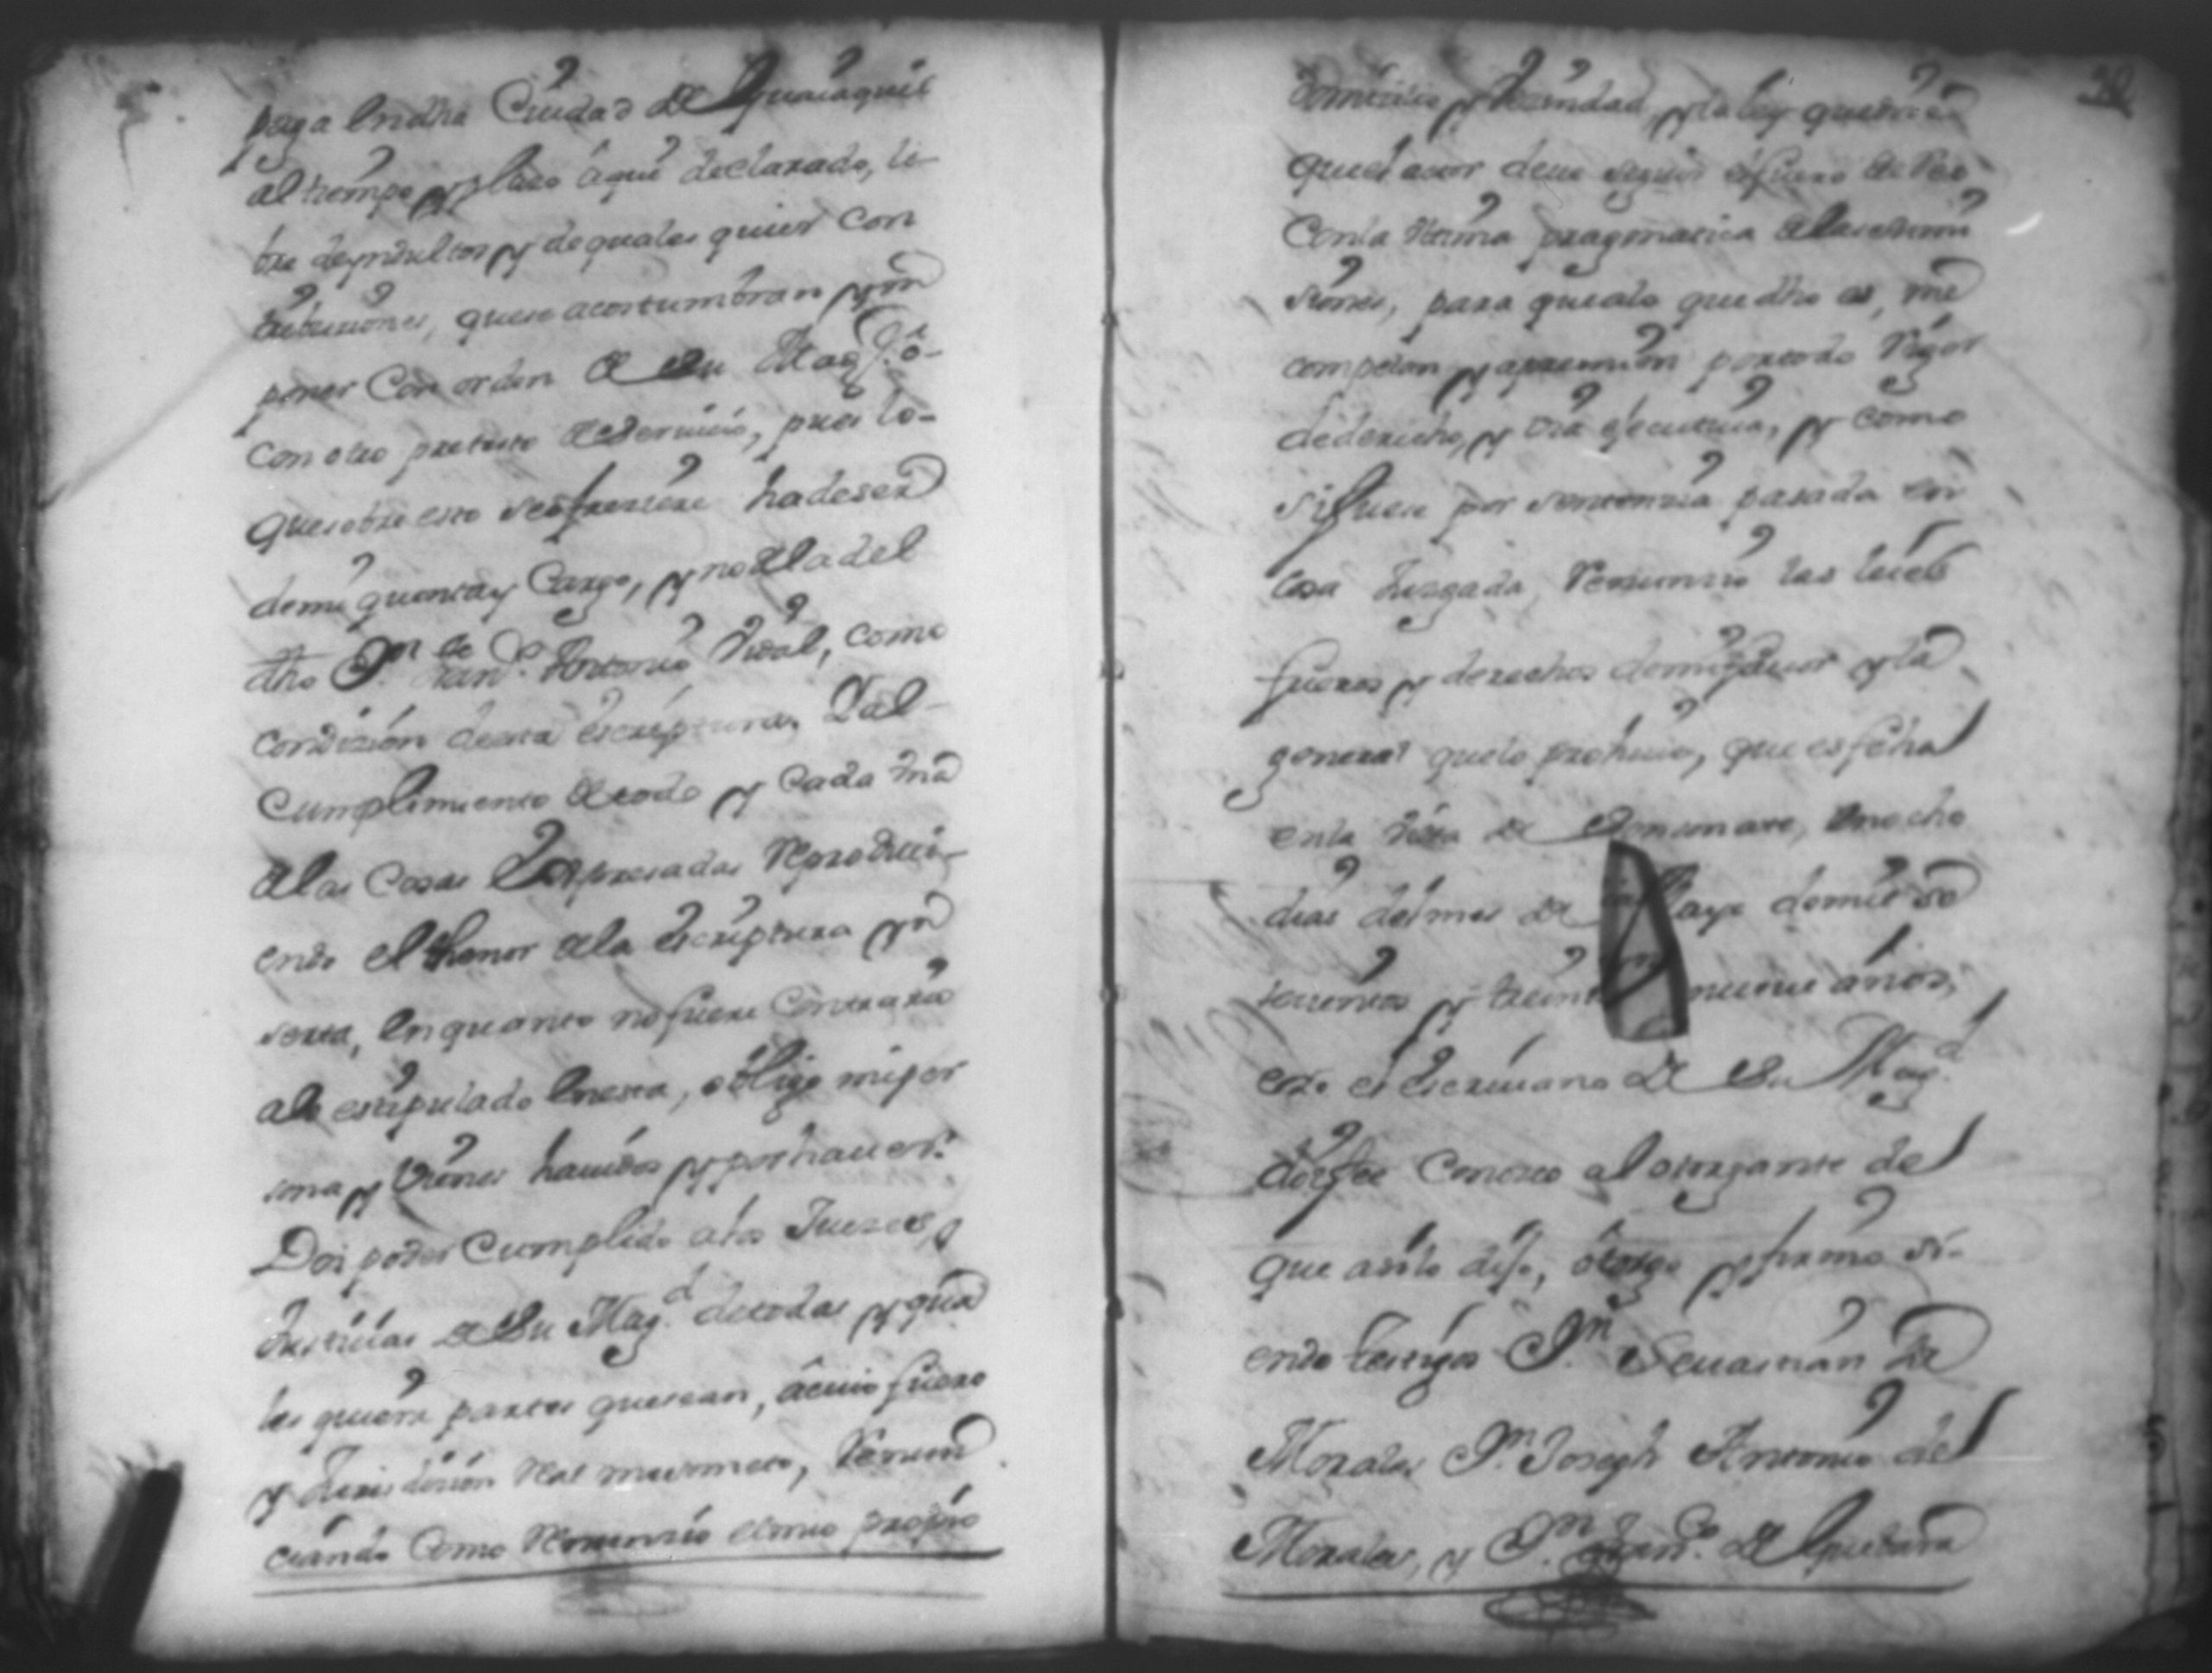 paga en dha Ciudad de Guaiaquil
al tiempo y plaso aqui declarado, li-
bre de yndultos y de quales quier con
tribuciones, que se acostumbran ym
poner Con orden de su Magd. o
con otro pretexto de servicio, pues lo-
que sobre esto se ofreciere ha de ser
de mi quenta y Cargo, y no de la del
dho Dn. Franco. Antonio Vidal, como
condizion desta escriptura, Y al
Cumplimiento de todo y Cada una
de las Cosas Expresadas Reproduci-
endo el thenor de la escriptura yn
serta, en quanto no fuere Contraria
a lo estipulado en esta, obligo mi per
sona y vienes havidos y por haver.
Doi poder Cumplido a los Juezes, y
Justicias de Su Magd. de todas y qua
les quiera partes que sean, a cuio fuero
y Jurisdizion Real me someto, Renun
ciando Como Renunzio el mio propio
30
Domicilio y Vezindad, y la ley que dize
que el actor deve seguir el fuero del Reo
Con la Ultima pragmatica de las sumi
siones, para que a lo que dho es, me
compelan y apremien por todo Rigor
de derecho, y via executiva, y como
si fuese por sentenzia pasada en
Cosa Juzgada, Renunzio las leies
fueros y derechos de mi favor y la
general que lo prohive, que es fecha
en la Villa de en ocho
dias del mes de Mayo de mil se
tecientos y treinta nueve años,
e yo el escrivano de Su Magd.
doi fee Conosco al otorgante del
que asi lo dijo, otorgo y firmo si-
endo testigos Dn. Sevastian de
Morales Dn. Joseph Antonio del
Morales, y Dn. Franco. de Guevara